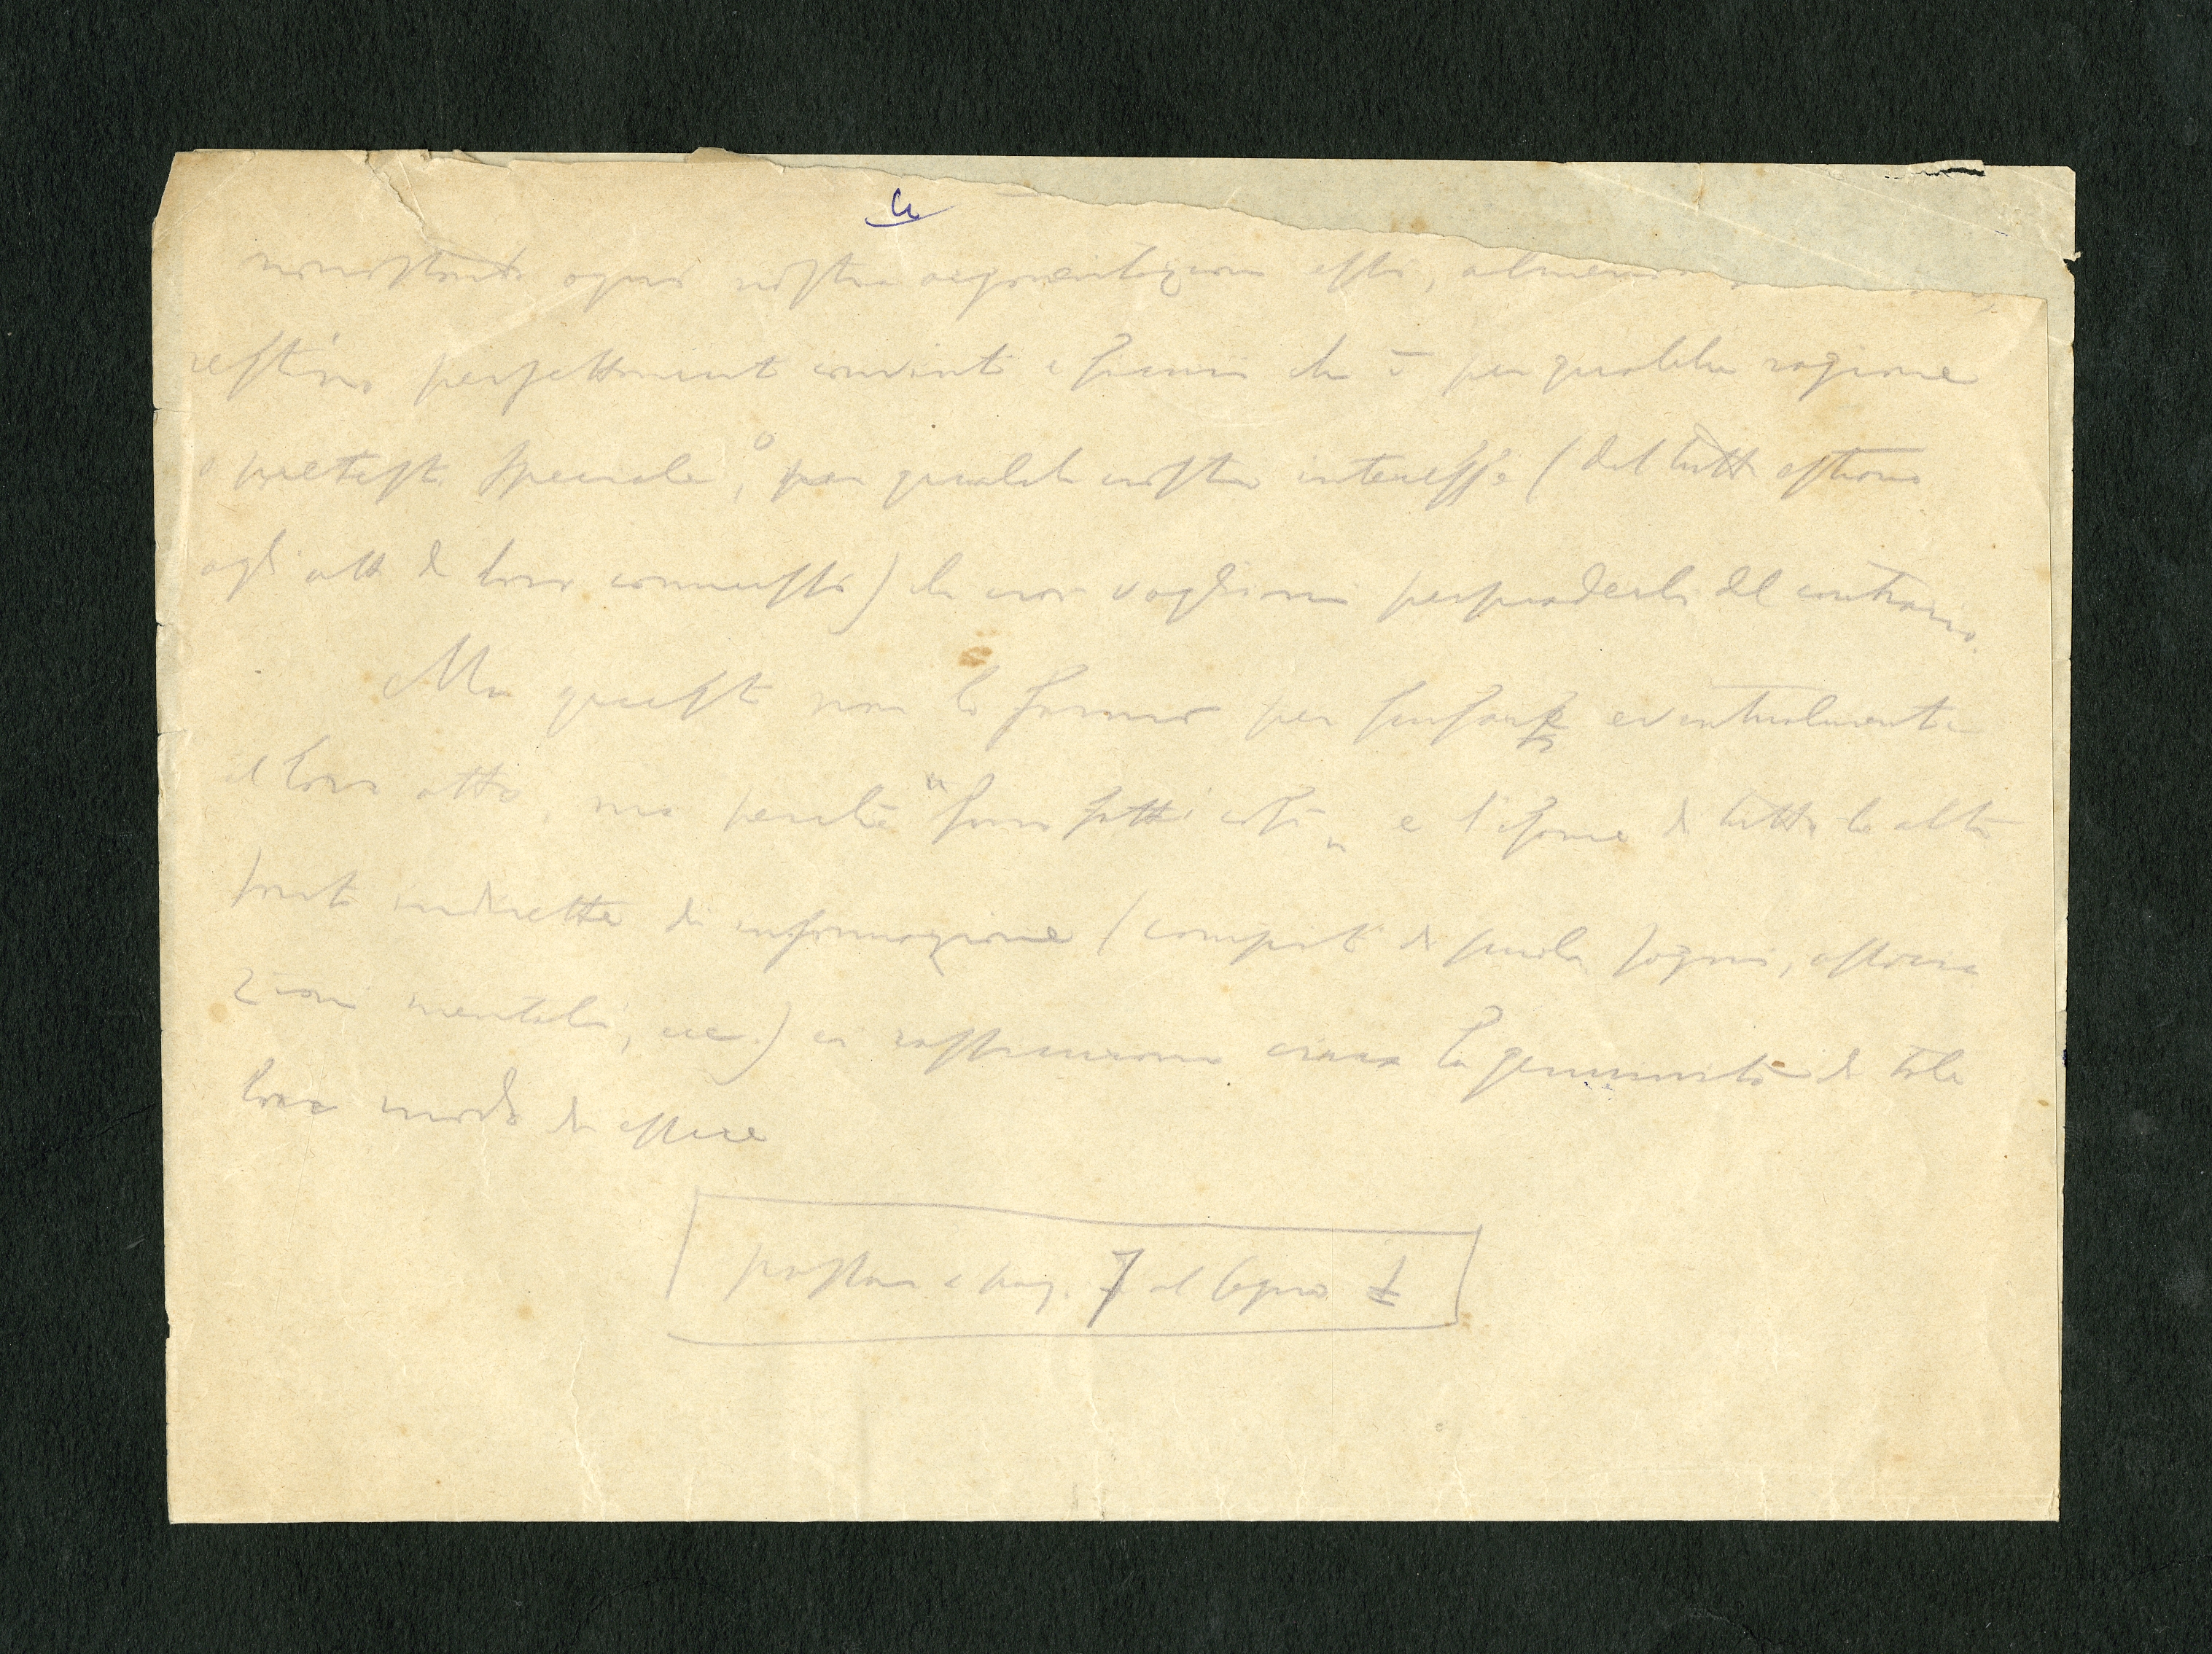 nonostante ogni nostra argomentazione essi, almeno
restino perfettamente convinti e sicuri che è per qualche ragione
o pretesto speciale, o per qualche nostro interesse (del tutto estraneo
agli atti da loro commessi) che noi vogliamo persuaderli del contrario.
Ma questo non lo fanno per scusare eventualmente
il loro atto, ma perché "sono fatti così" e l'esame di tutte le altre
fonti indirette di informazione (compiti di scuola, sogni, associa
zioni mentali, ecc.) ci rassicurano circa la genuinità di tale
loro modo di essere
7 al segno ‡